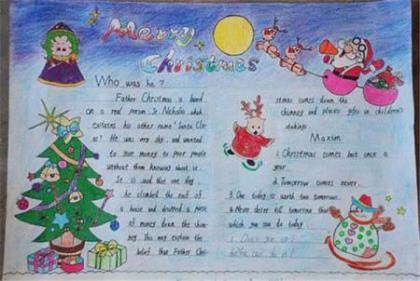 Merry
Christmas
Who was he?
Father Christmas a based
on a real person St. Nicholas which
explains his other name "Santa Cla-
us". He was very shy and wanted
to give money to poor people
without them knowing about it.
It is said that one day,
he climbed the roof of
a house and dropped a purse
of money down the chim-
ney. This may explain the
belief that Father Chri-
stmas comes down the
chimney and places gifts in children's
stockings
Maxim
1.Christmas comes but once a
year.
2.Tomorrow comes never.
3.One today is worth two tomorrows.
4.Never deter till tomorrow that
which you can do today.